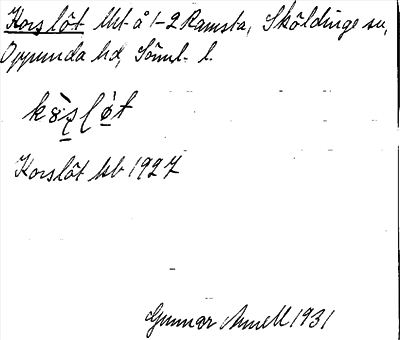 Korslöt Uht å 1-2 Ramsta, Sköldinge sn,
Oppunda hd, Söml. l.
Korslöt kb 1927
Gunnar 1931